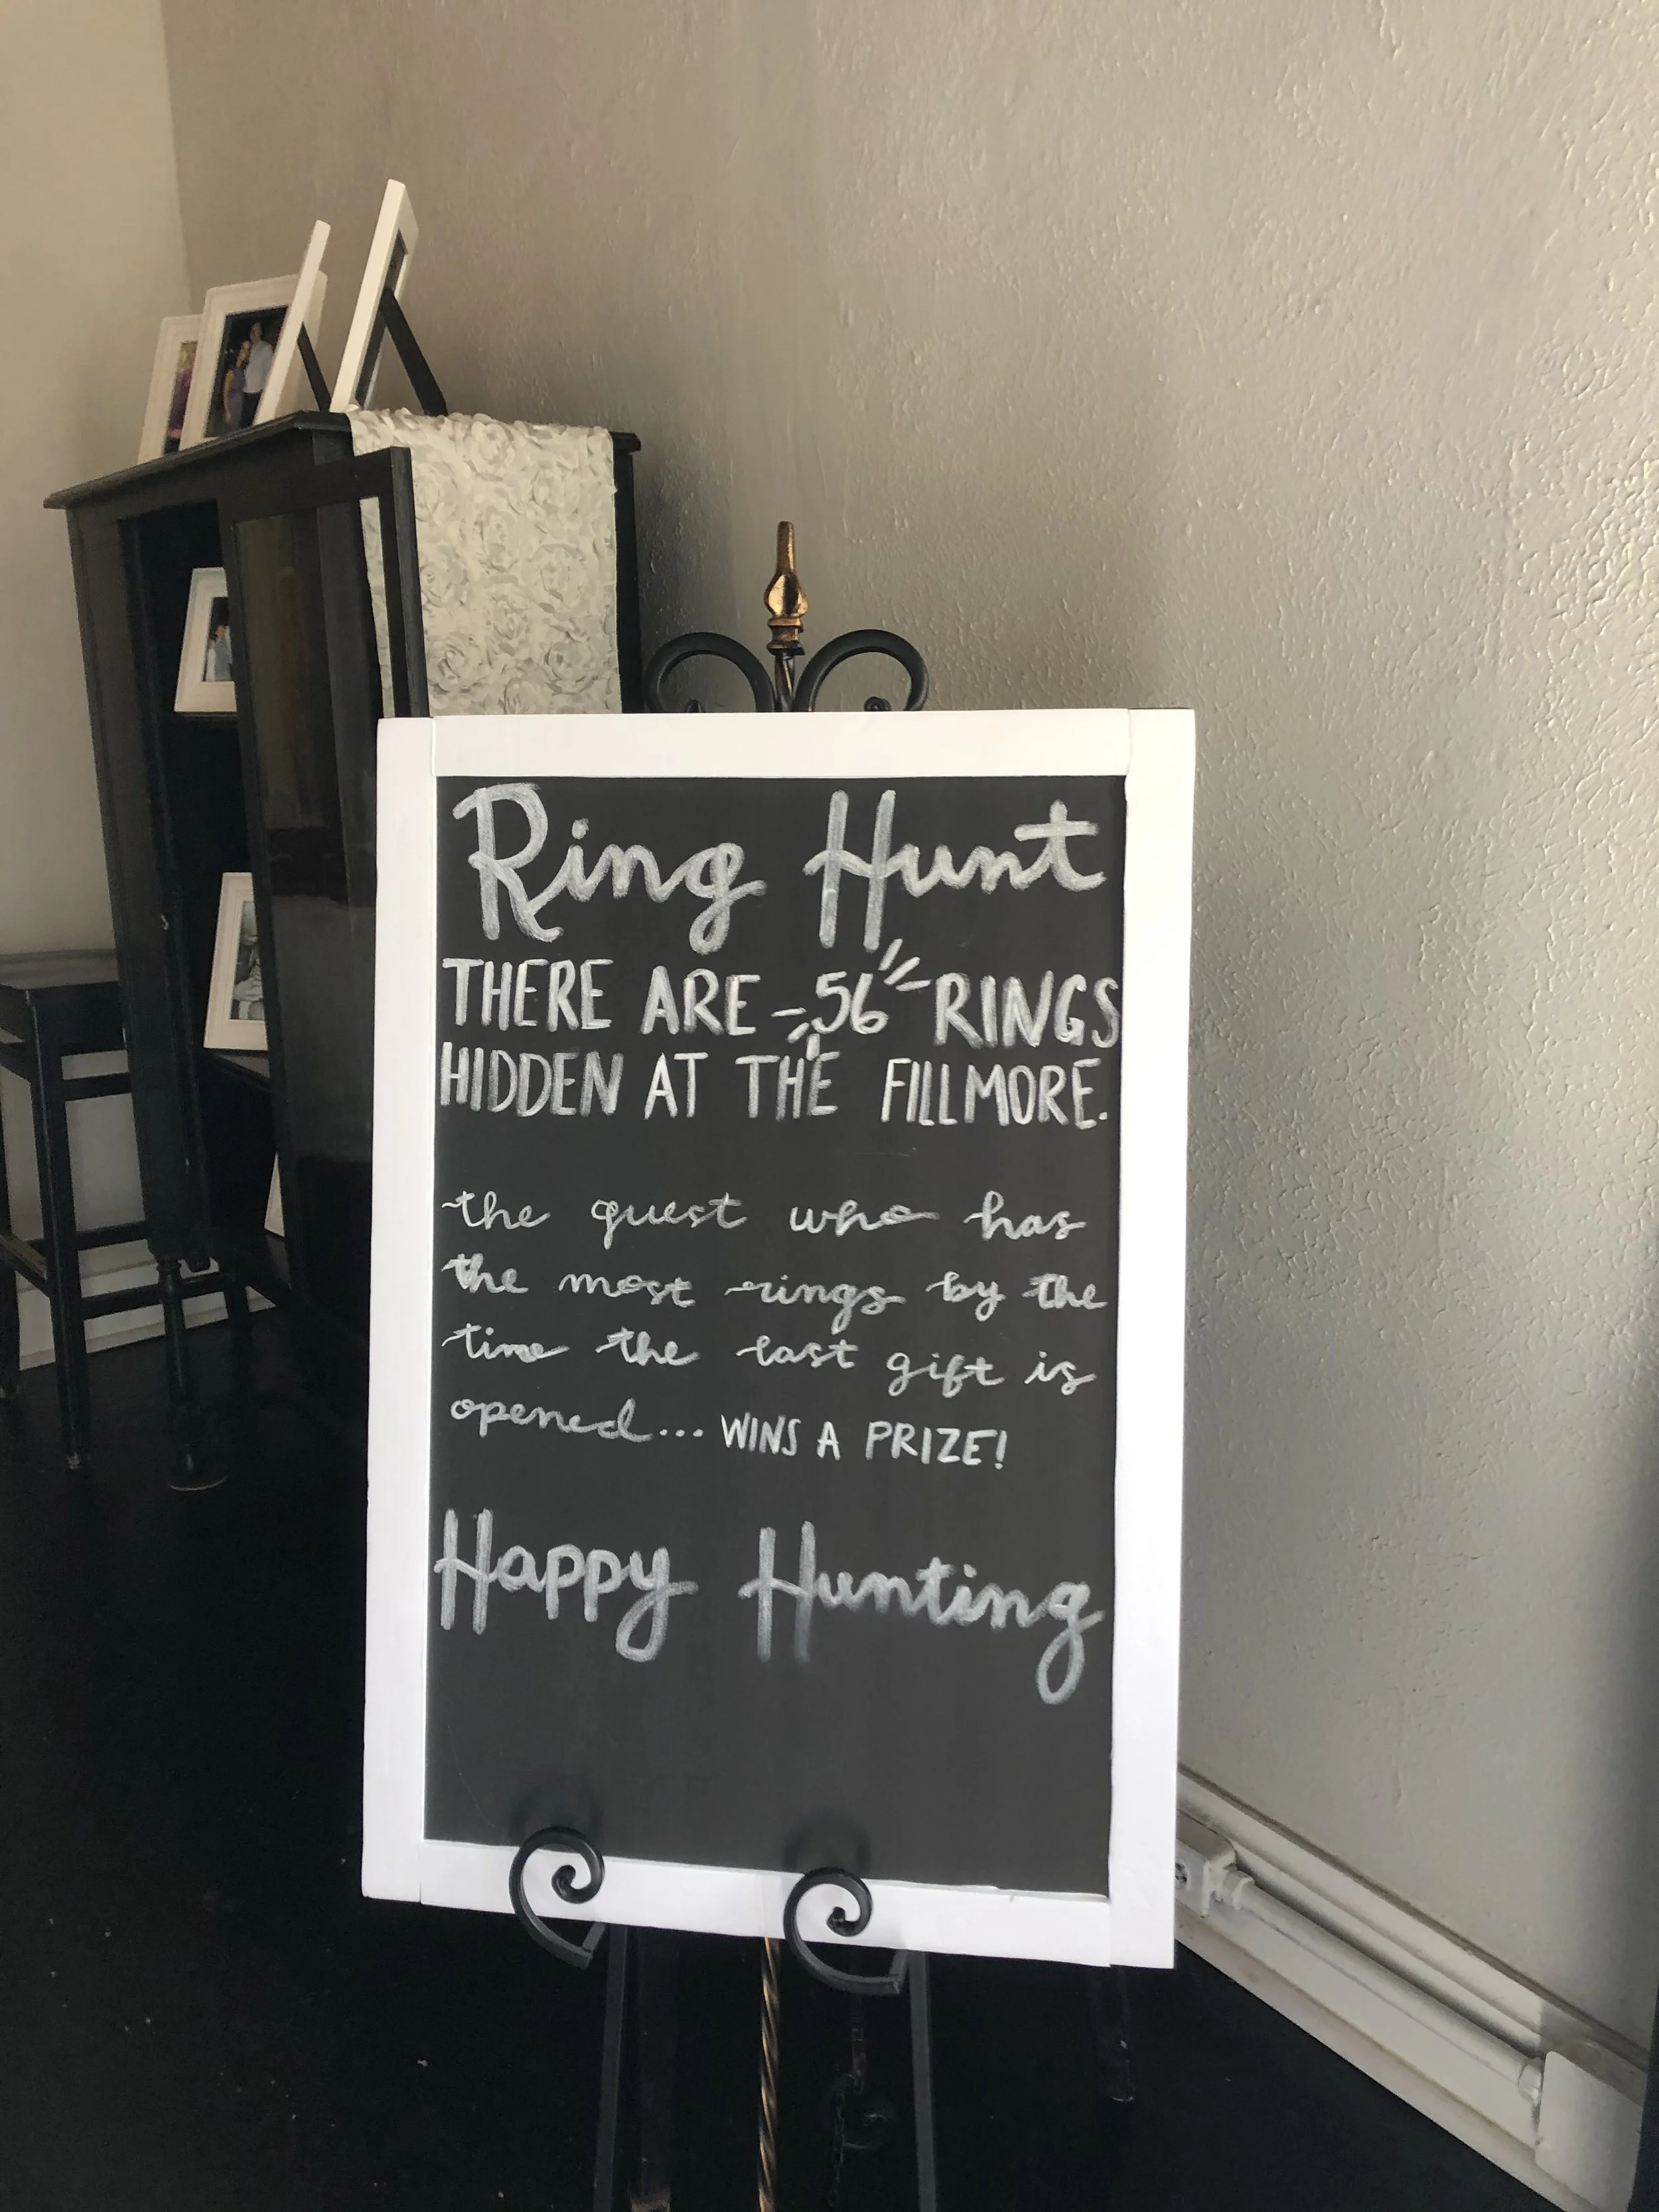 Ring Hunt
THERE ARE 56 RINGS
HIDDEN AT THE FILLMORE.
the guest who has
the most rings by the
time the last gift is
opened... WINS A PRIZE!
Happy Hunting